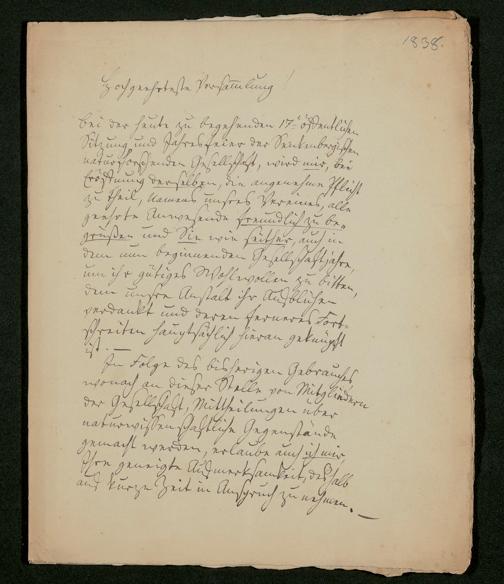 1838.
Hochgeehrteste Versammlung!
Bei der heute zu begehenden 17ten öffentlichen
Sitzung und Jahresfeier der Senkenbergischen
naturforschenden Gesellschaft, wird mir, bei
Eröffnung derselben, die angenehme Pflicht
zu Theil, Namens unsres Vereines, alle
geehrte Anwesende freundlich zu be-
grüßen und Sie wie seither, auch in
dem nun beginnenden Gesellschaftsjahre,
um ihr gütiges Wohlwollen zu bitten,
dem unsre Anstalt ihr Aufblühen
verdankt und deren ferneres Fort-
schreiten hauptsächlich hieran geknüpft
ist. —
In Folge des bisherigen Gebrauches,
wonach an dieser Stelle von Mitgliedern
der Gesellschaft, Mittheilungen über
naturwissenschaftliche Gegenstände
gemacht werden, erlaube auch ich mir,
Ihre geneigte Aufmerksamkeit, deshalb
auf kurze Zeit in Anspruch zu nehmen. —